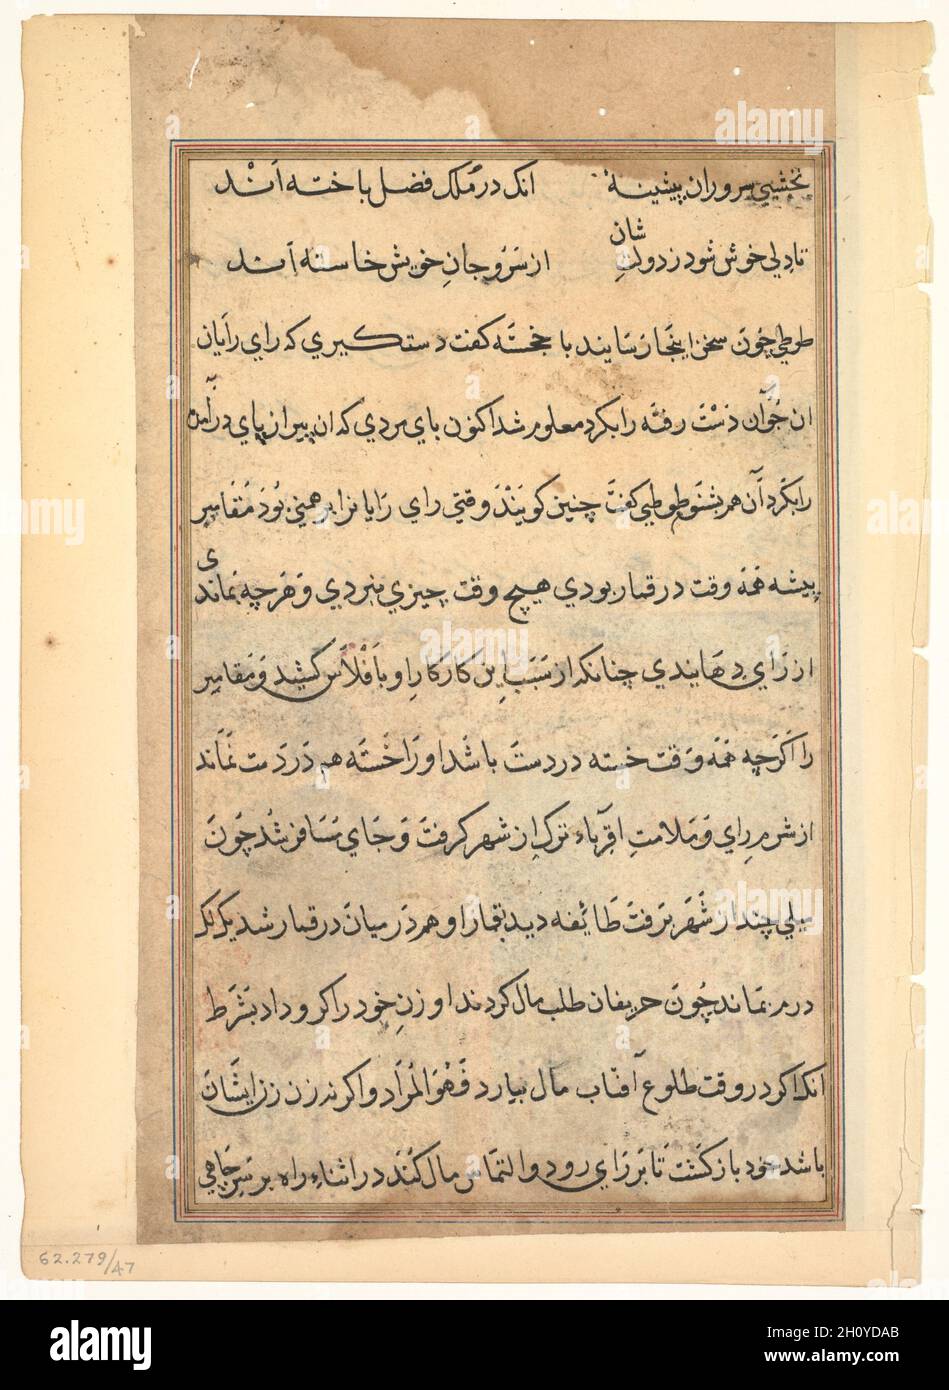 نخشبي سروران پیشینهٔ انک در مُلک فضل باخته اَنْد
شان
تا دلي خوش شود ز دولتِ از سَرُ و جانِ خویش خاسته اَند
طوطي چُون سخن اینجا رَسَانید با خجَسته کفت دستکیري که راي رَایان
ان جُوَان دَسْتَ رفته را بکرد معلوم شد اکنون باي مردي که ان پیر از پاي در آمده
را بکرد آن هم بشنو طوطي کفتَ چنین کویَنْدَ وقتي راي رَایانرا برهمني بُودَ مُقامِر
ي
پیشه هَمَه وقت در قمار بودي هیچ وقت چیزي نبردي وَ هَرچه نماند
از رَاي دِهَانیدي چنانکه از سَبَبَ این کار کارِ او باَفْلاَس کشید وَ مقامِر
را اَکَرچه هَمَه وَقت خسته در دستَ باشَد او رَا خَسْتَه هم دَر دَست نَمَاند
از شرمِ راي وَ مَلامتِ اقرباء ترکِ ان شهر کرفتَ وَ جَاي مسَافر شُد چُونَ
میلي چند از شَهرَ برفتَ طَائفه دید بقمار او هم دَر میان در قمار شد یک لک
درم بماند چُونَ حریفان طلب مال کردند او زنِ خود را کرو داد بشَرَط
انکه اکر در وقت طلوعِ آفتاب مال بیارد فَهُوَ المُرَاد و اکر نه زن زن ایشَان
باشد خود باز کشت تا بَر رَاي رود و التماس مال کُنَد در اثناءِ راه بر سَرِ چَاهي
62.279/47
alamy
Image ID: 2H0YDAB
www.alamy.com